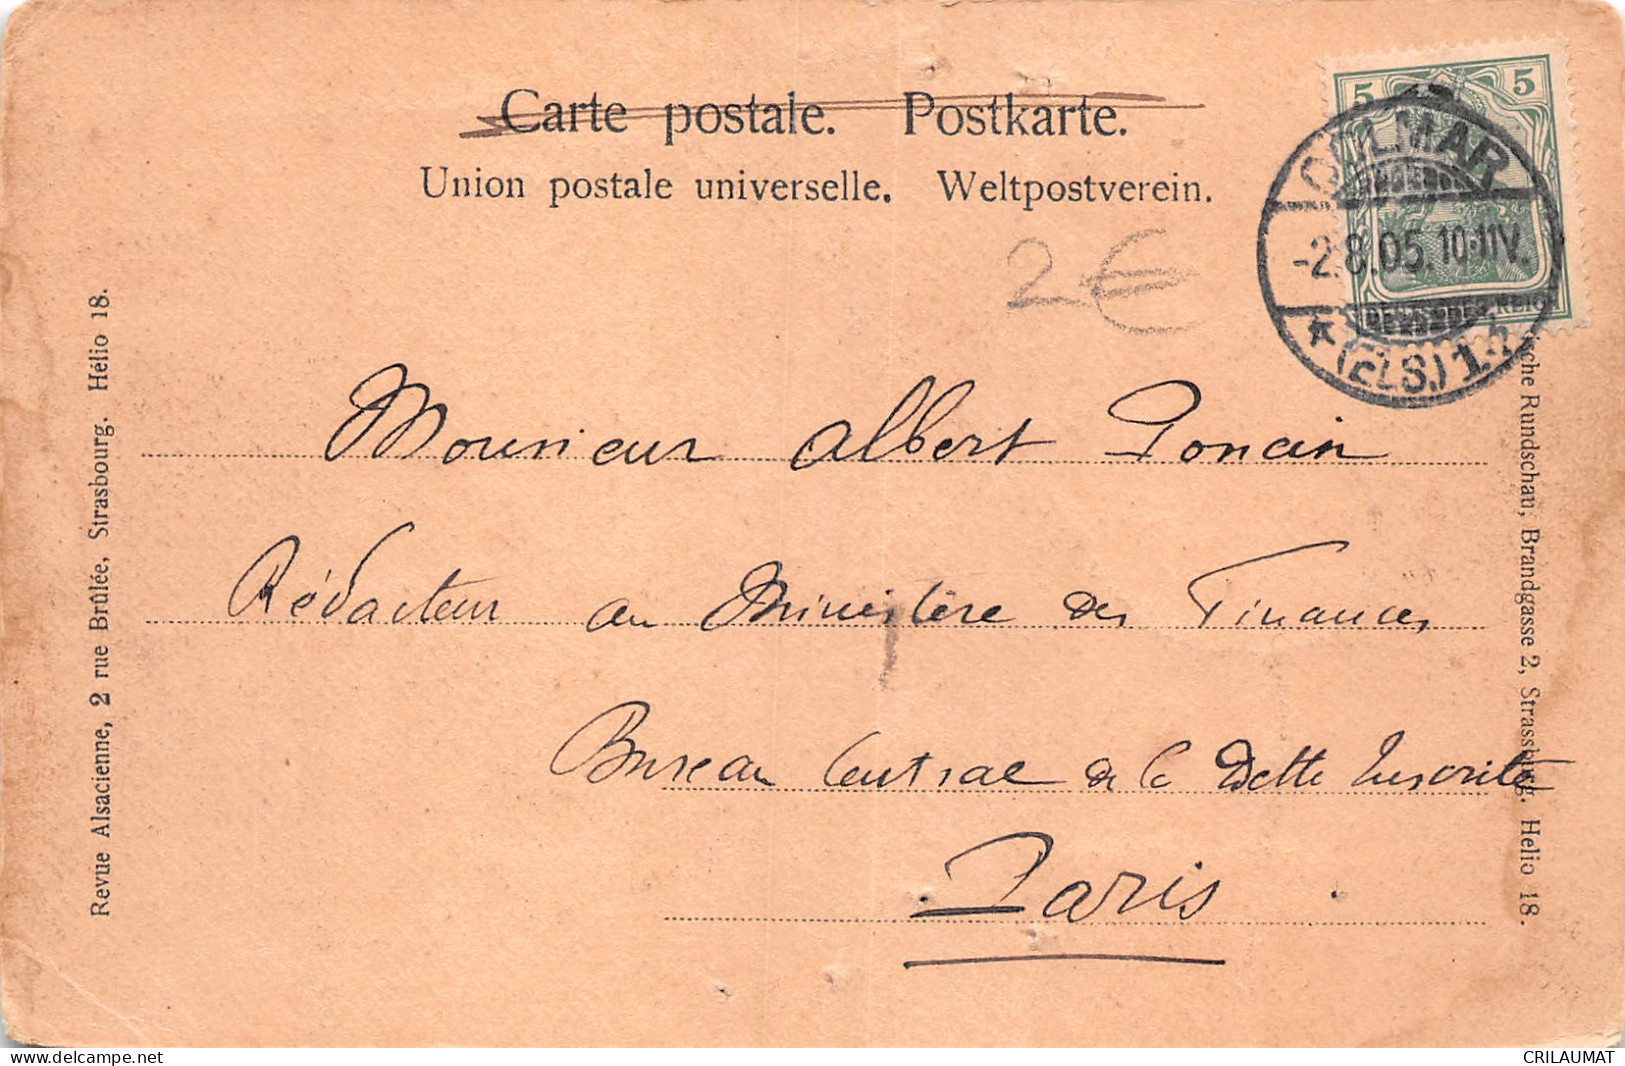 Carte postale. Postkarte.
Union postale universelle. Weltpostverein.
5 5
COLMAR
-2.8.05. 10-11V.
* (ELS.) 1.
2€
Monsieur Albert Poncin
Rédacteur au Ministère des Finances
Bureau Central de la Dette Inscrite
Paris
Revue Alsacienne, 2 rue Brûlée, Strasbourg. Hélio 18.
sche Rundschau, Brandgasse 2, Strassburg. Helio 18.
delcampe.net
CRILAUMAT